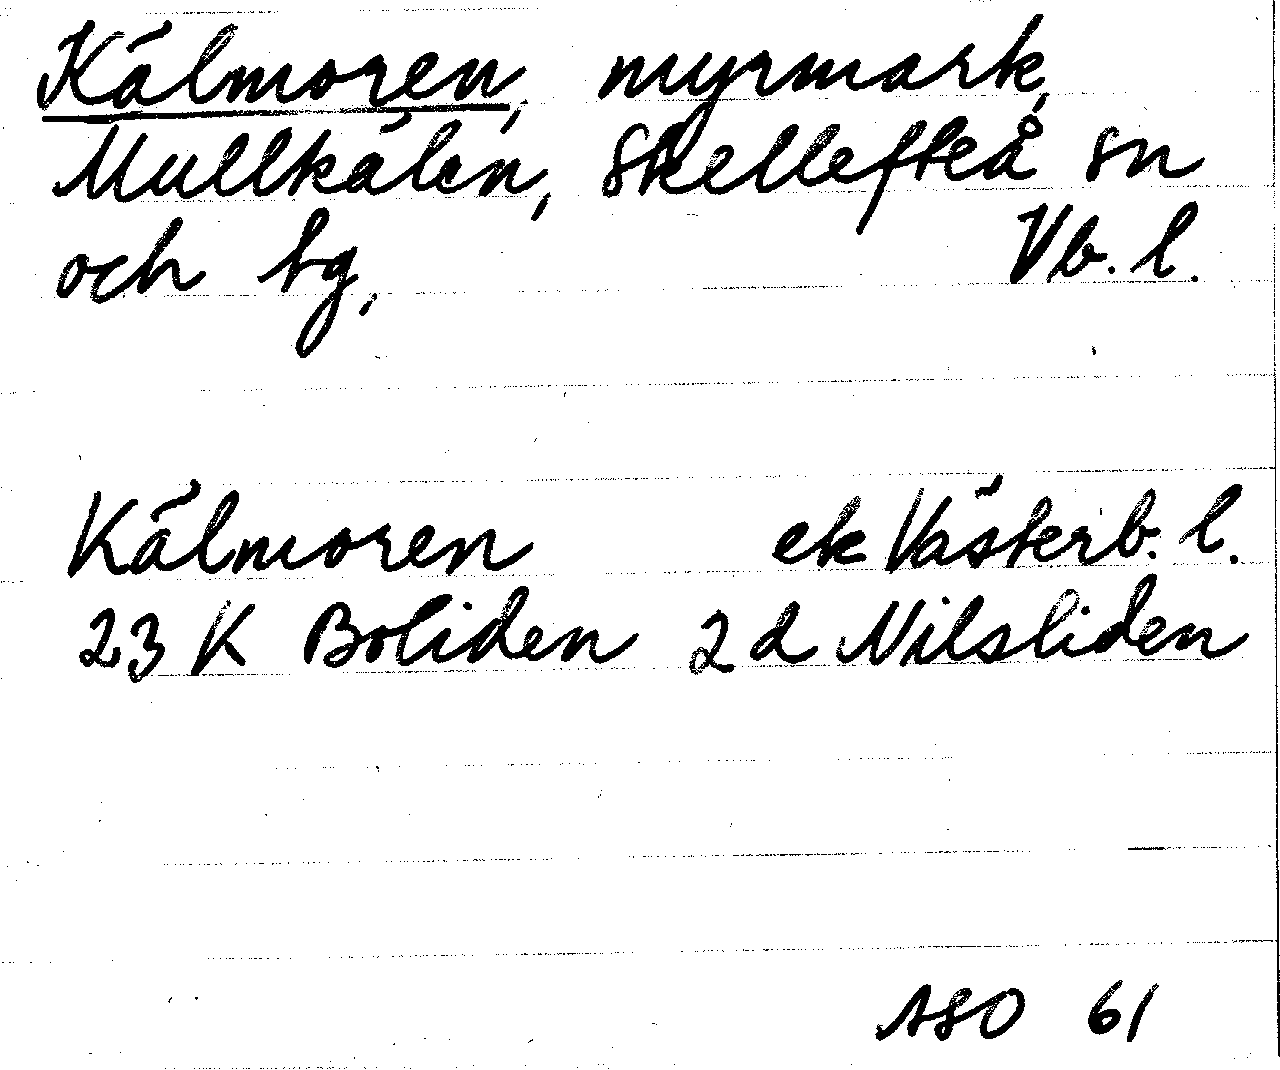 Kälmoren, myrmark,
Mullkälen, Skellefteå sn
och tg, Vb. l.
Kälmoren ek Västerb. l.
23 K Boliden 2 d Nilsliden
ASO 61